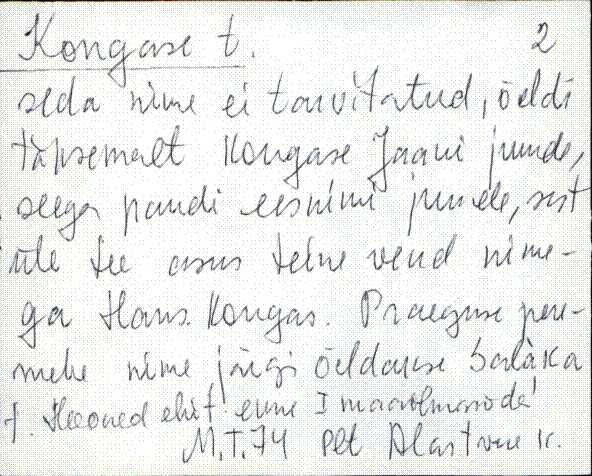 Kongase t. 2
seda nime ei tarvitatud, öeldi
täpsemalt Kongase Jaani juude,
seega pandi eesnimi juude, sest
üle tee asus teine vend nime-
ga Hans Kongas. Praeguse pere-
mehe nime järgi öeldakse Salàka
t. Hooned ehit. enne I maailmasõda
M.T. 74 Plt Alastvere k.